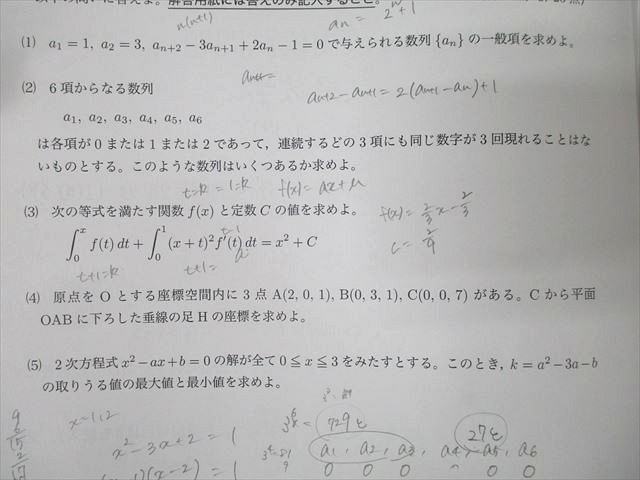 解答用紙には答えのみ記入すること
n(n+1)
an = 2^n+1
(1) a₁ = 1, a₂ = 3, aₙ₊₂ − 3aₙ₊₁ + 2aₙ − 1 = 0 で与えられる数列 {aₙ} の一般項を求めよ。
(2) 6 項からなる数列
an+2 − an+1 = 2(an+1 − an) + 1
a₁, a₂, a₃, a₄, a₅, a₆
は各項が 0 または 1 または 2 であって，連続するどの 3 項にも同じ数字が 3 回現れることはな
いものとする。このような数列はいくつあるか求めよ。
(3) 次の等式を満たす関数 f(x) と定数 C の値を求めよ。
f(x) = 2/3 x − 2/3
∫₀ˣ f(t) dt + ∫₀¹ (x + t)² f′(t) dt = x² + C
t+1=k
t+1=
(4) 原点を O とする座標空間内に 3 点 A(2, 0, 1), B(0, 3, 1), C(0, 0, 7) がある。C から平面
OAB に下ろした垂線の足 H の座標を求めよ。
(5) 2 次方程式 x² − ax + b = 0 の解が全て 0 ≦ x ≦ 3 をみたすとする。このとき，k = a² − 3a − b
の取りうる値の最大値と最小値を求めよ。
x=1,2
3⁶ = 729
27
x² − 3x + 2 = 1
a₁, a₂, a₃, a₄, a₅, a₆
(x−2) = 1
0 0 0 0 0